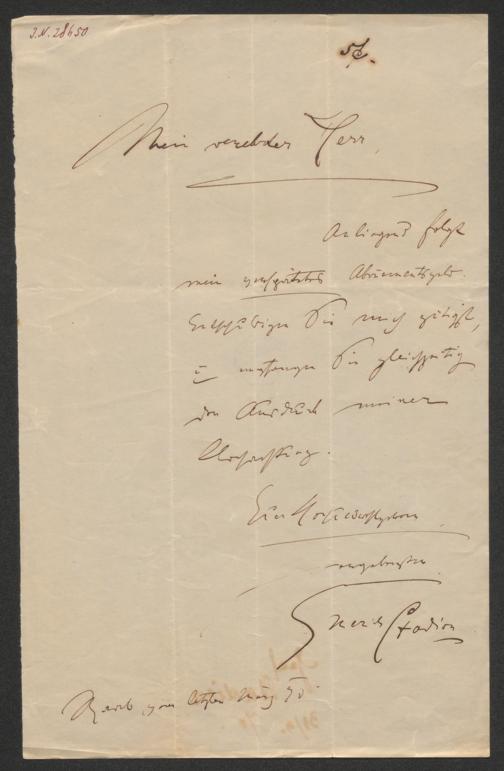 J.N. 28650
Mein verehrter Herr,
Anliegend folgt
mein verspätetes Abonnementsgeld.
Entschuldigen Sie mich gütigst,
u empfangen Sie gleichzeitig
den Ausdruck meiner
Hochachtung.
Euer Hochwohlgeboren
ergebenster
Emerich Stadion
vom letzten März 90.